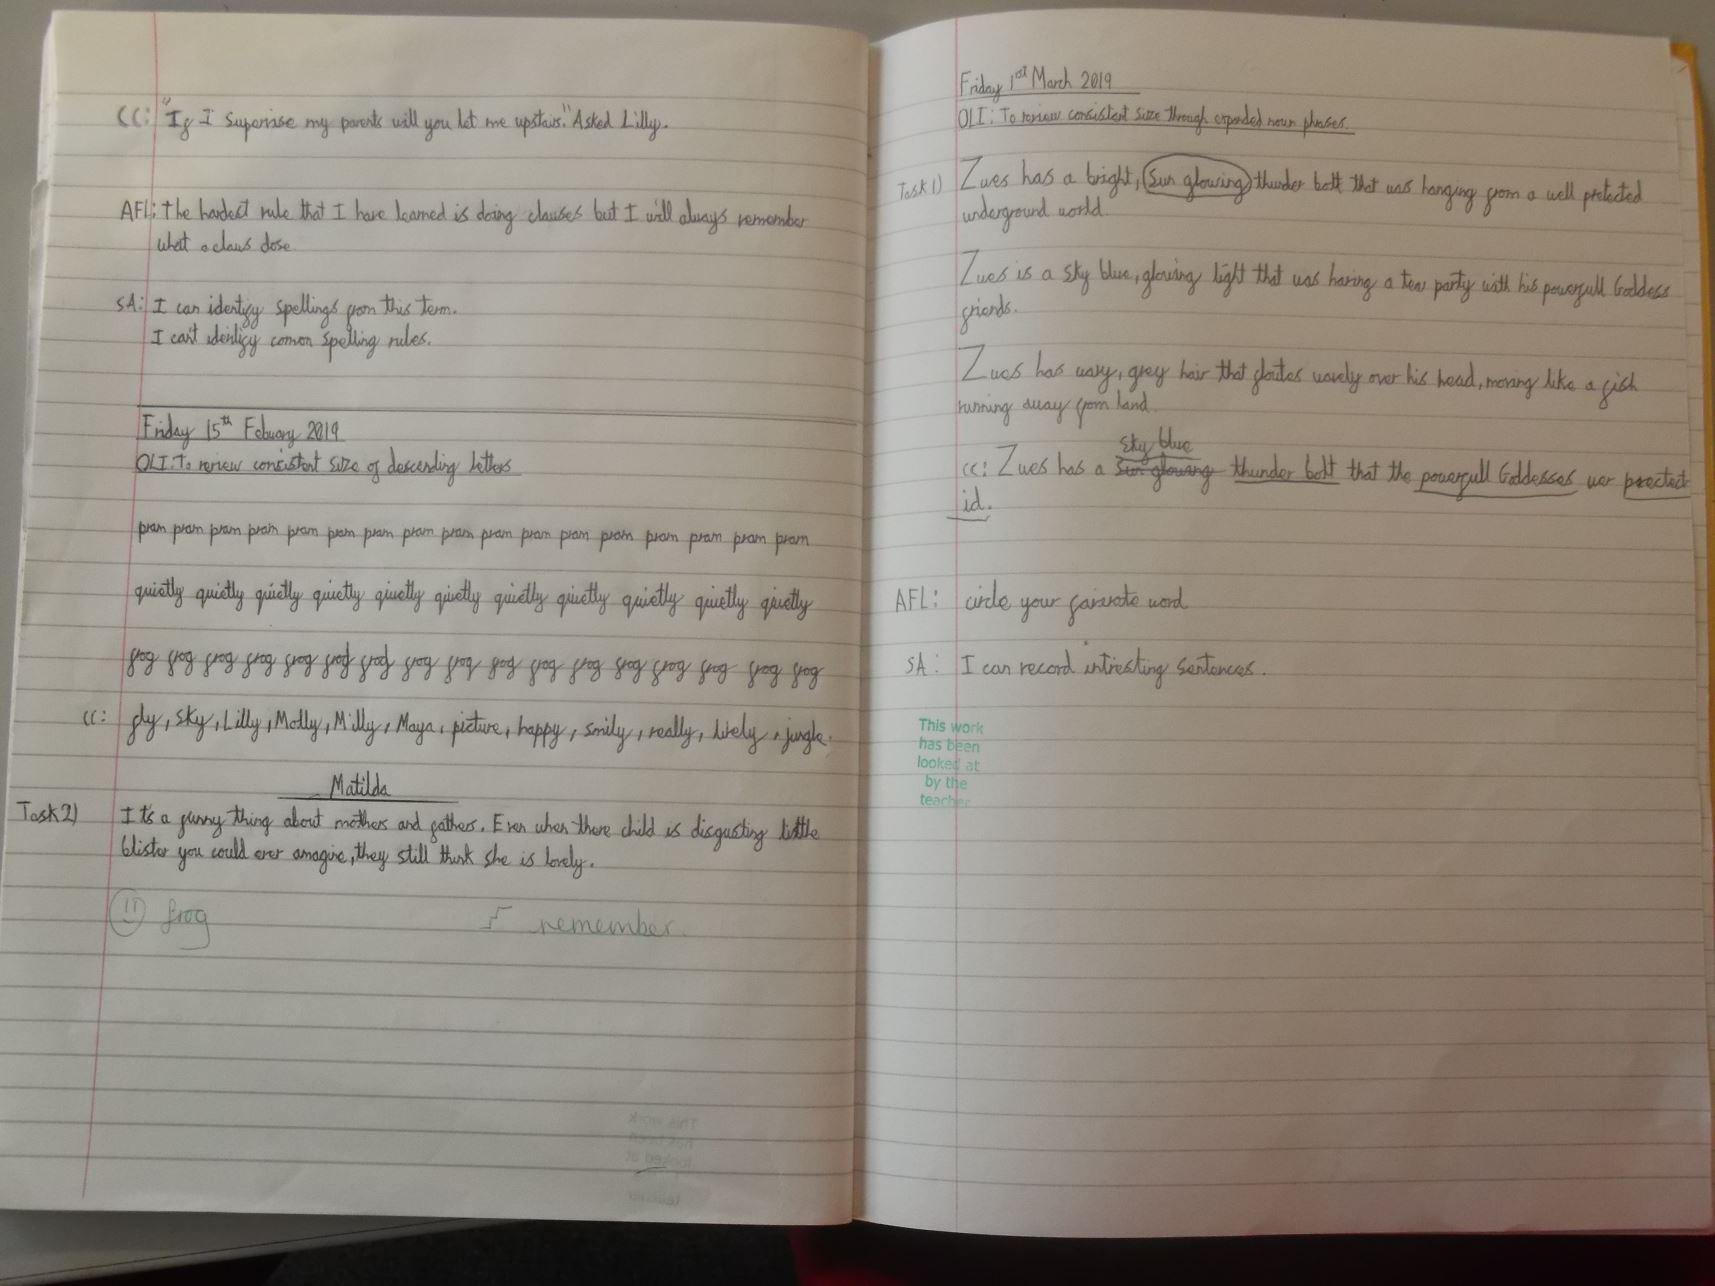 CC: "If I Supervise my parents will you let me upstairs." Asked Lilly.
AFL: The hardest rule that I have learned is doing clauses but I will always remember
what a claus dose
SA: I can identify spellings from this term.
I can't identify comon spelling rules.
Friday 15th Febuary 2019
OLI: To review consistent size of descending letters
pram pram pram pram pram pram pram pram pram pram pram pram pram pram pram pram pram
quietly quietly quietly quietly quietly quietly quietly quietly quietly quietly quietly
frog frog frog frog frog frog frog frog frog frog frog frog frog frog frog frog frog
CC: fly, sky, Lilly, Molly, Milly, Maya, picture, happy, smily, really, lively, jungle.
Matilda
Task 2) It's a funny thing about mothers and fathers. Even when there child is disgusting little
blister you could ever amagine, they still think she is lovely.
frog remember.
Friday 1st March 2019
OLI: To review consistent size through expanded noun phrases.
Task 1) Zues has a bright, sun glowing thunder bolt that was hanging from a well protected
underground world.
Zues is a sky blue, glowing light that was having a tea party with his powerfull Goddess
friends.
Zues has wavy, grey hair that floutes wavely over his head, moving like a fish
running away from land.
sky blue
CC: Zues has a sun glowing thunder bolt that the powerfull Goddesses wer protect
id.
AFL: circle your favirote word
SA: I can record intresting sentences.
This work
has been
looked at
by the
teacher